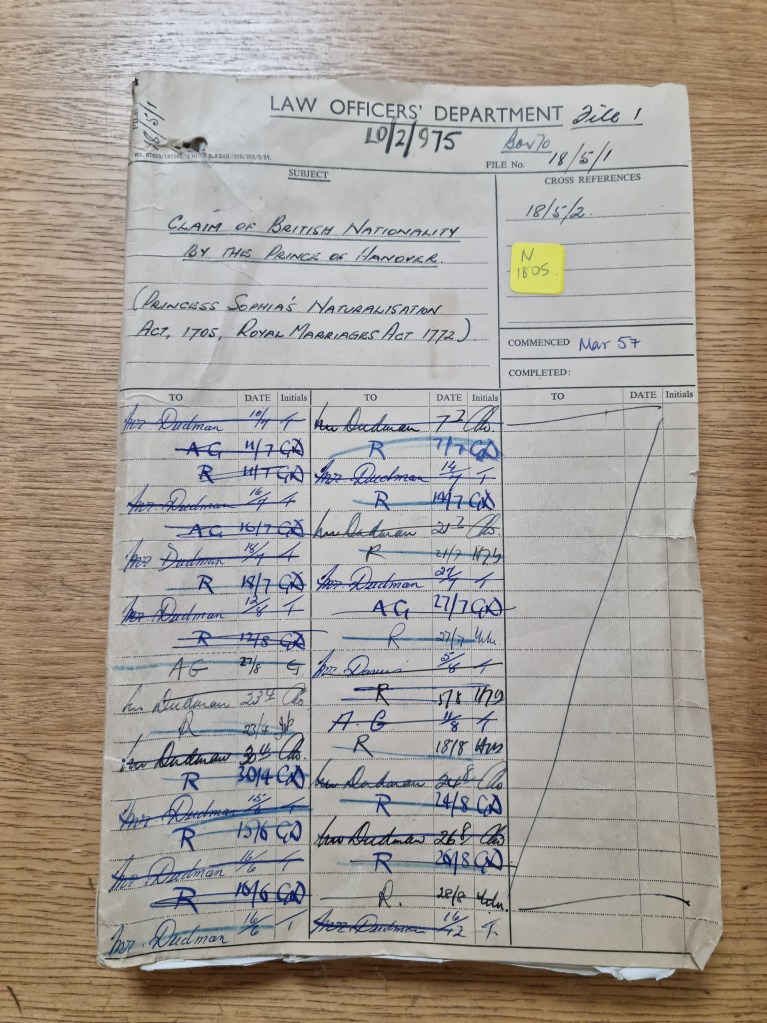 LAW OFFICERS' DEPARTMENT File 1
LO/2/975
Box 70
FILE No. 18/5/1
18/5/1
SUBJECT
CROSS REFERENCES
18/5/2.
CLAIM OF BRITISH NATIONALITY
BY THE PRINCE OF HANOVER.
N
1805.
(PRINCESS SOPHIA'S NATURALISATION
ACT, 1705, ROYAL MARRIAGES ACT 1772).
COMMENCED Mar 57
COMPLETED:
TO DATE Initials TO DATE Initials TO DATE Initials
Mr Dudman 10/7 T
AG 11/7 GD
R 11/7 GD
Mr Dudman 16/7 T
AG 16/7 GD
Mr Dudman 18/7 T
R 18/7 GD
Mr Dudman 12/8 T
R 12/8 GD
AG 27/8 G
Mr Dudman 23 4
R 23/4
Mr Dudman 30 4
R 30/4 GD
Mr Dudman T
R 15/6 GD
Mr Dudman 16/6 T
R 16/6 GD
Mr Dudman 16/6 T
Mr Dudman 7 7
R 7/7 GD
Mr Dudman 14/7 T
R 14/7 GD
Mr Dudman 21 7
R 21/7
Mr Dudman 27/7 T
AG 27/7 GD
R 27/7
Mr 5/8 T
R 5/8
A.G T
R 18/8
Mr Dudman 24 8
R 24/8 GD
Mr Dudman 26 8
R 26/8 GD
R. 28/8
Mr Dudman 16/12 T